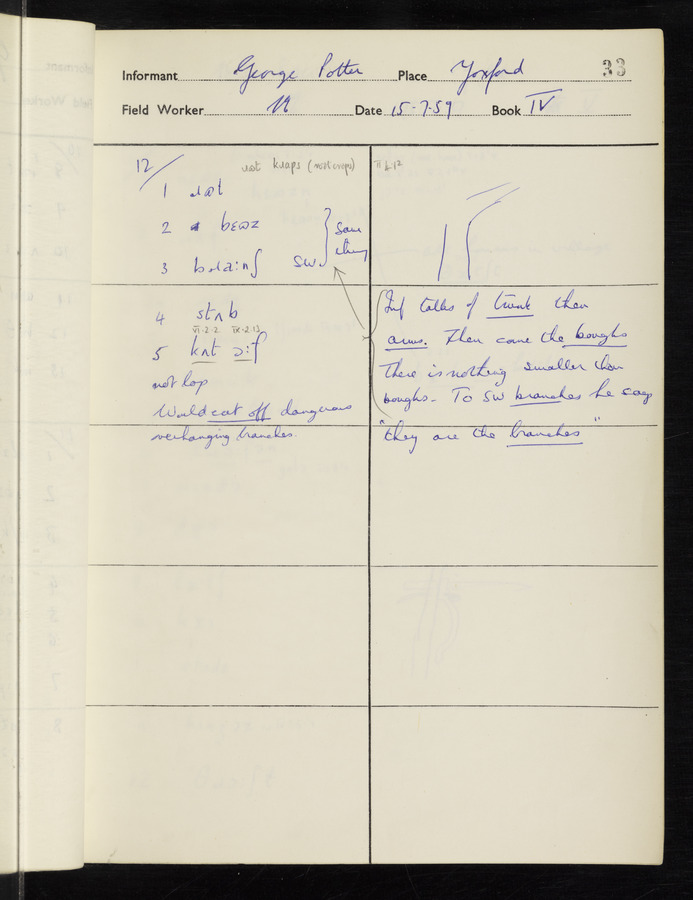 Informant George Potter Place Yoxford 33
Field Worker Date 15-7-59 Book IV
12/
knaps (root crops)
1
2 bɛɷz
3 SW. } Same thing
4 stʌb
VI·2·2 IX·2·13
5 kʌt ɔ:f
not lop
Would cut off dangerous
overhanging branches.
Inf talks of trunk then
arms. Then come the boughs
There is nothing smaller than
boughs. To SW branches he says
"they are the branches"